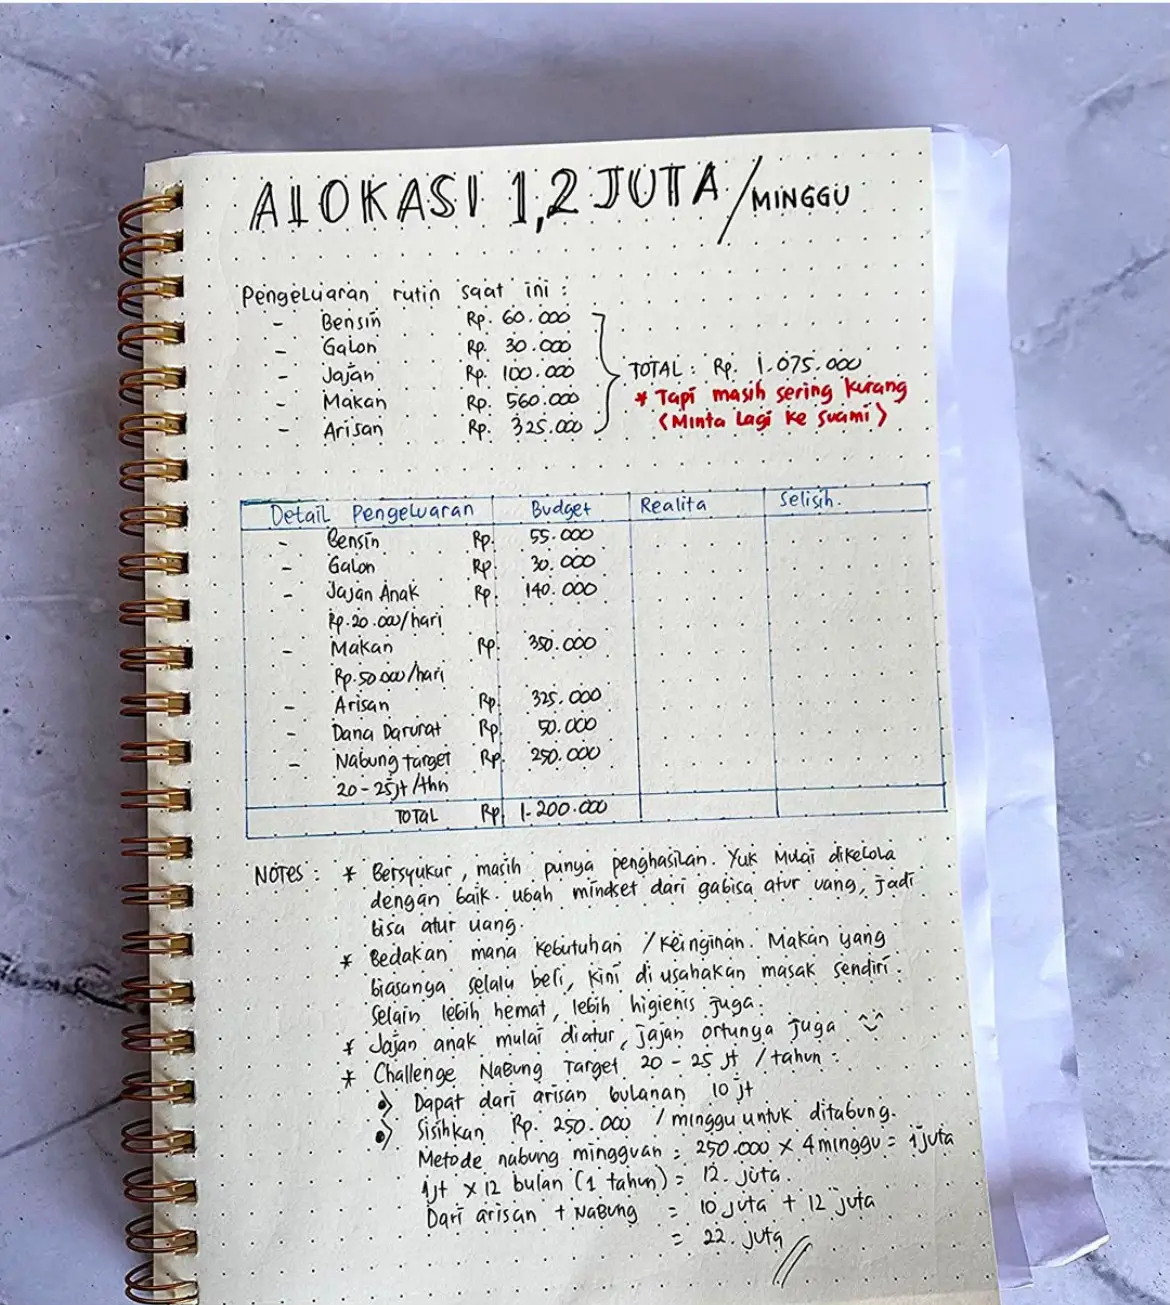 ALOKASI 1,2 JUTA / MINGGU
Pengeluaran rutin saat ini :
- Bensin Rp. 60.000
- Galon Rp. 30.000
- Jajan Rp. 100.000
- Makan Rp. 560.000
- Arisan Rp. 325.000
TOTAL : Rp. 1.075.000
* Tapi masih sering kurang
(Minta lagi ke suami)
Detail Pengeluaran Budget Realita Selisih.
- Bensin Rp. 55.000
- Galon Rp. 30.000
- Jajan Anak Rp. 140.000
Rp. 20.000/hari
- Makan Rp. 350.000
Rp. 50.000/hari
- Arisan Rp. 325.000
- Dana Darurat Rp. 50.000
- Nabung target Rp. 250.000
20 - 25jt /thn
TOTAL Rp. 1.200.000
NOTES : * Bersyukur, masih punya penghasilan. Yuk Mulai dikelola
dengan baik. ubah mindset dari gabisa atur uang, jadi
bisa atur uang.
* Bedakan mana kebutuhan / keinginan. Makan yang
biasanya selalu beli, kini di usahakan masak sendiri.
Selain lebih hemat, lebih higienis juga.
* Jajan anak mulai diatur, jajan ortunya juga ^‿^
* Challenge Nabung Target 20 - 25 jt / tahun :
Dapat dari arisan bulanan 10 jt
Sisihkan Rp. 250.000 / minggu untuk ditabung.
Metode nabung mingguan = 250.000 x 4 minggu = 1 juta
1jt x 12 bulan (1 tahun) = 12. juta.
Dari arisan + Nabung = 10 juta + 12 juta
= 22. juta //